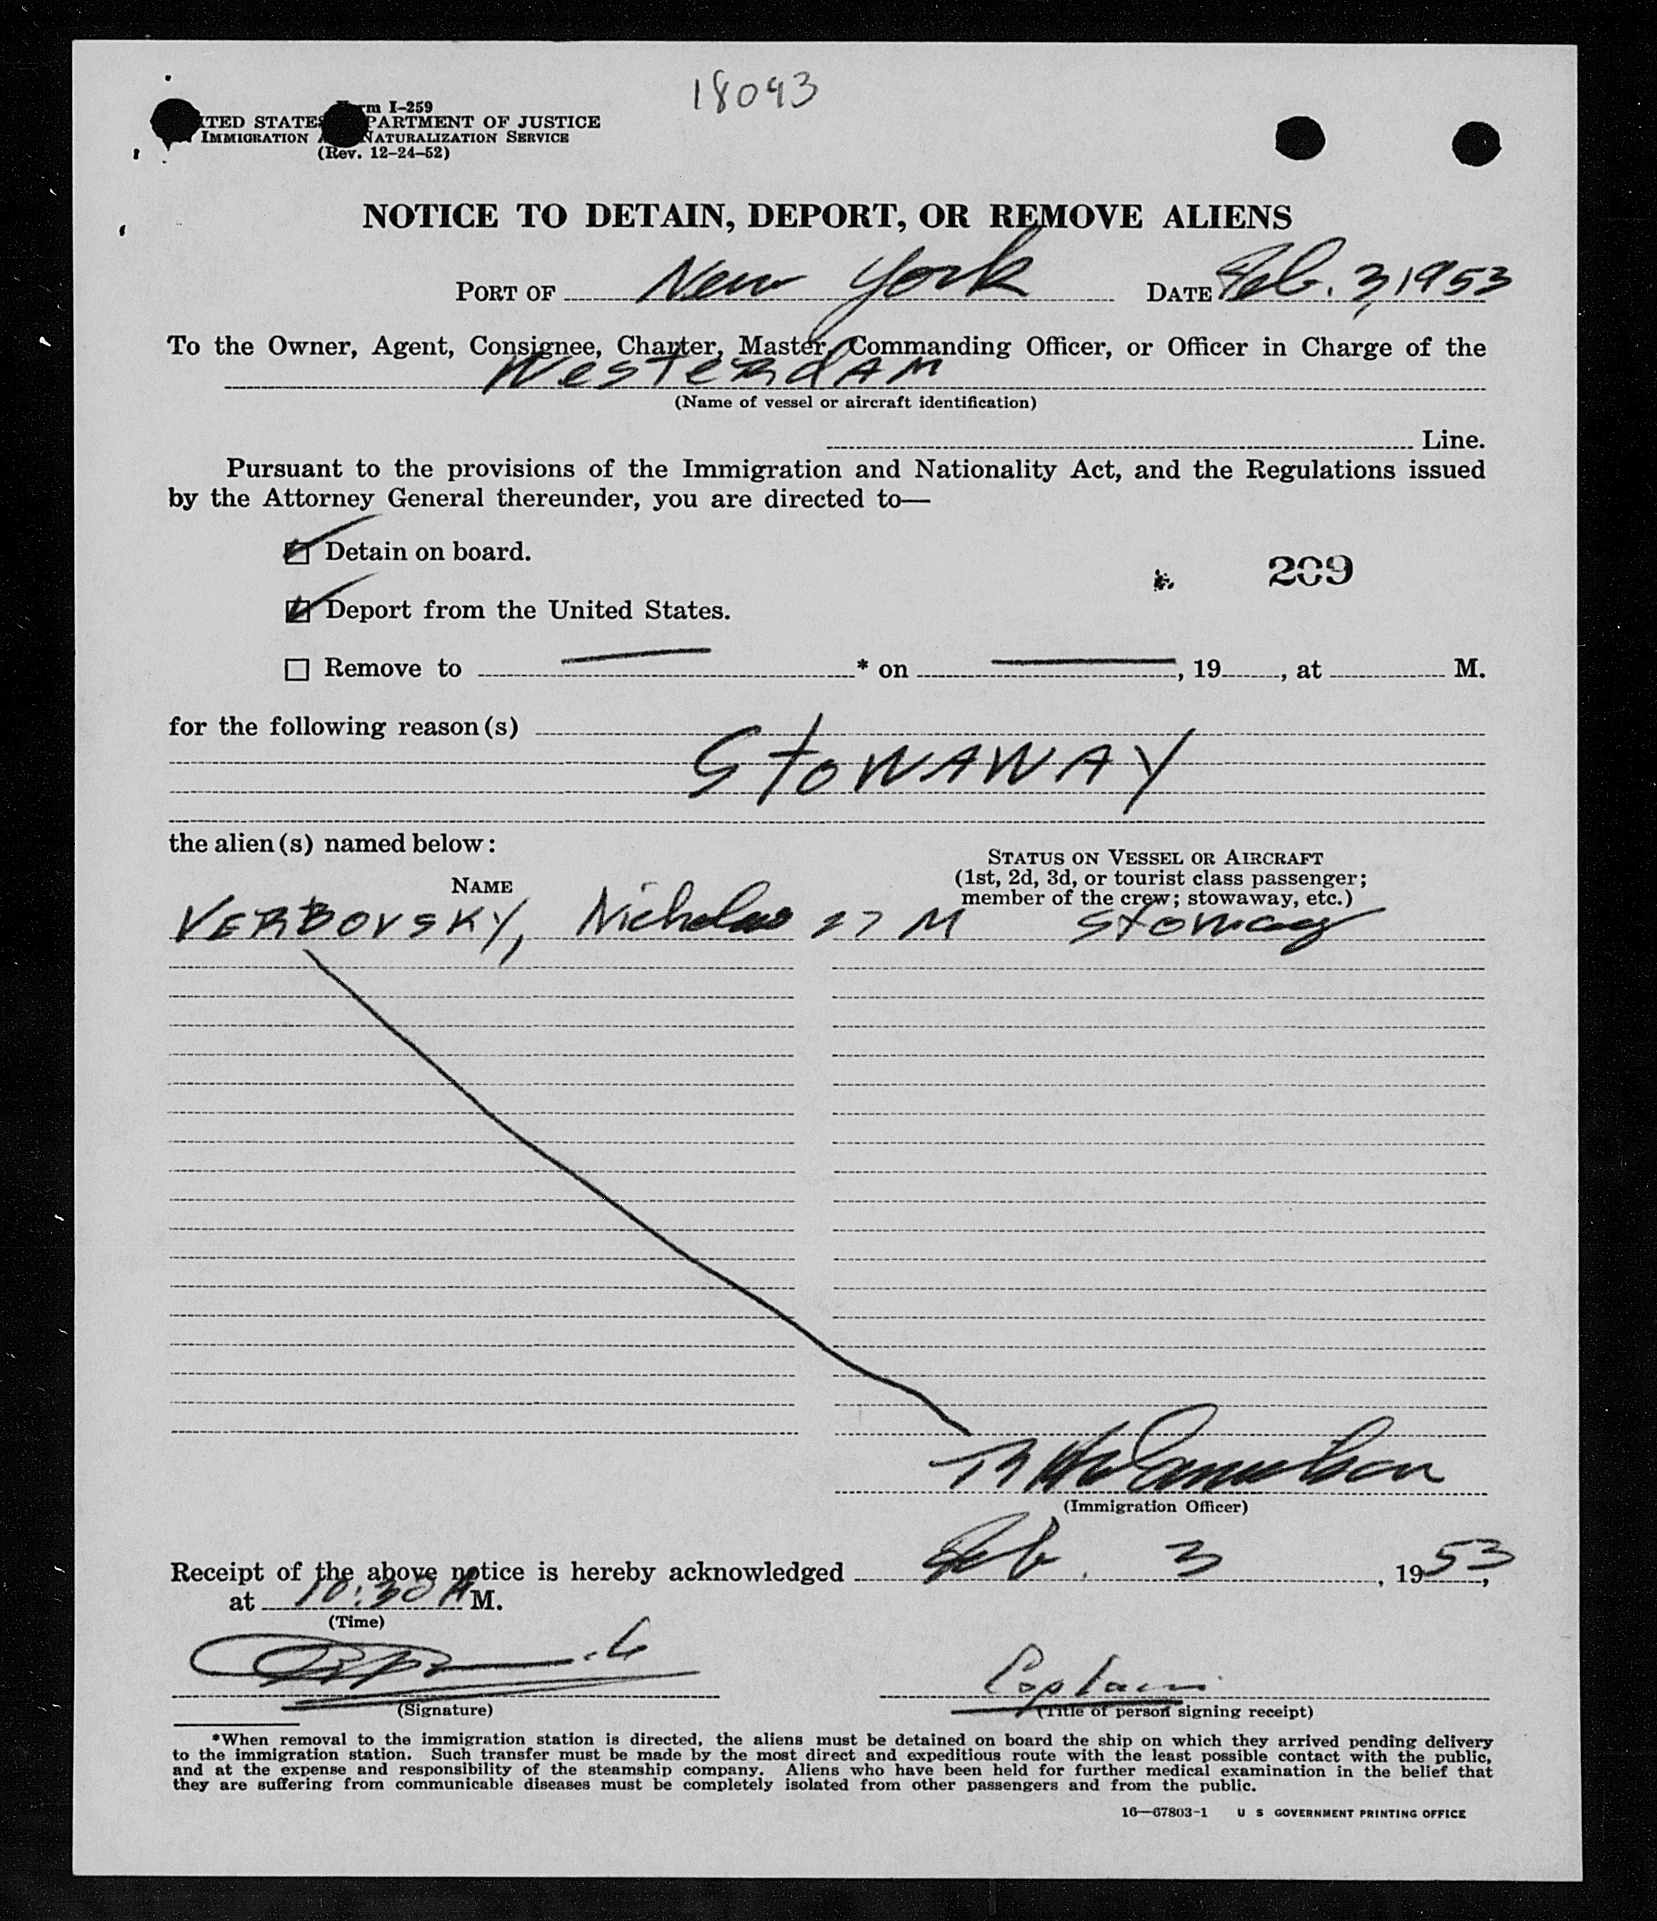 18093
Form I-259
UNITED STATES DEPARTMENT OF JUSTICE
IMMIGRATION AND NATURALIZATION SERVICE
(Rev. 12-24-52)
NOTICE TO DETAIN, DEPORT, OR REMOVE ALIENS
PORT OF New York DATE Feb. 3, 1953
To the Owner, Agent, Consignee, Charter, Master, Commanding Officer, or Officer in Charge of the
WesteRdAM
(Name of vessel or aircraft identification)
Line.
Pursuant to the provisions of the Immigration and Nationality Act, and the Regulations issued
by the Attorney General thereunder, you are directed to—
Detain on board.
209
Deport from the United States.
Remove to * on , 19 , at M.
for the following reason(s)
StOWAWAY
the alien(s) named below:
STATUS ON VESSEL OR AIRCRAFT
(1st, 2d, 3d, or tourist class passenger;
member of the crew; stowaway, etc.)
NAME
VERBOVSKY, Nicholas 27 M Stowaway
(Immigration Officer)
Receipt of the above notice is hereby acknowledged Feb. 3, 1953,
at 10:30 A M.
(Time)
Captain
(Signature) (Title of person signing receipt)
*When removal to the immigration station is directed, the aliens must be detained on board the ship on which they arrived pending delivery
to the immigration station. Such transfer must be made by the most direct and expeditious route with the least possible contact with the public,
and at the expense and responsibility of the steamship company. Aliens who have been held for further medical examination in the belief that
they are suffering from communicable diseases must be completely isolated from other passengers and from the public.
16—67803-1 U S GOVERNMENT PRINTING OFFICE